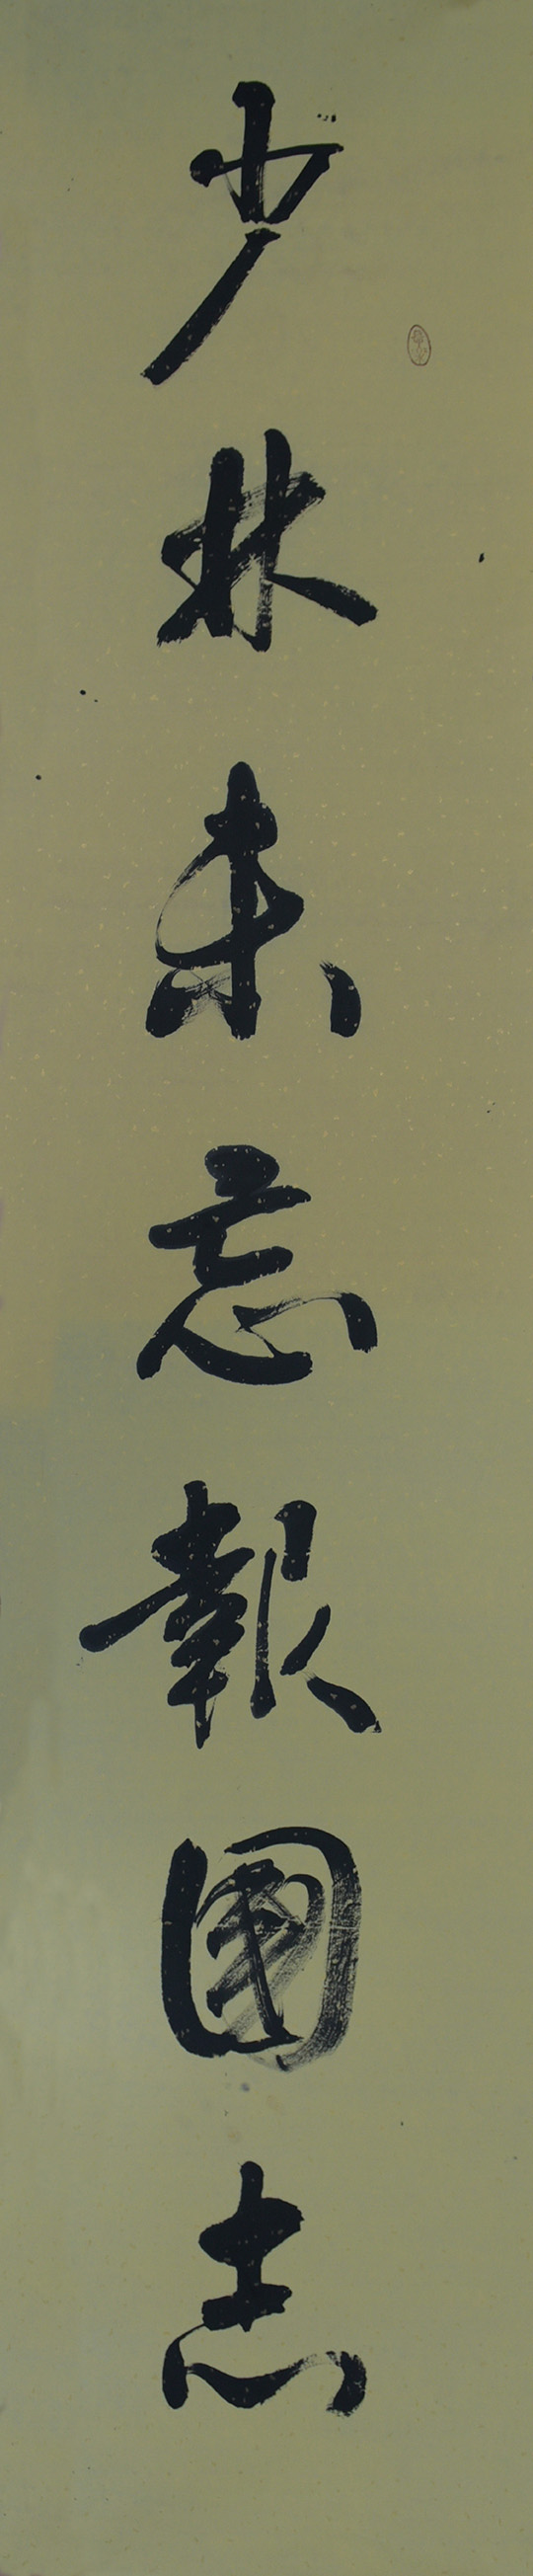 少林未忘報國志